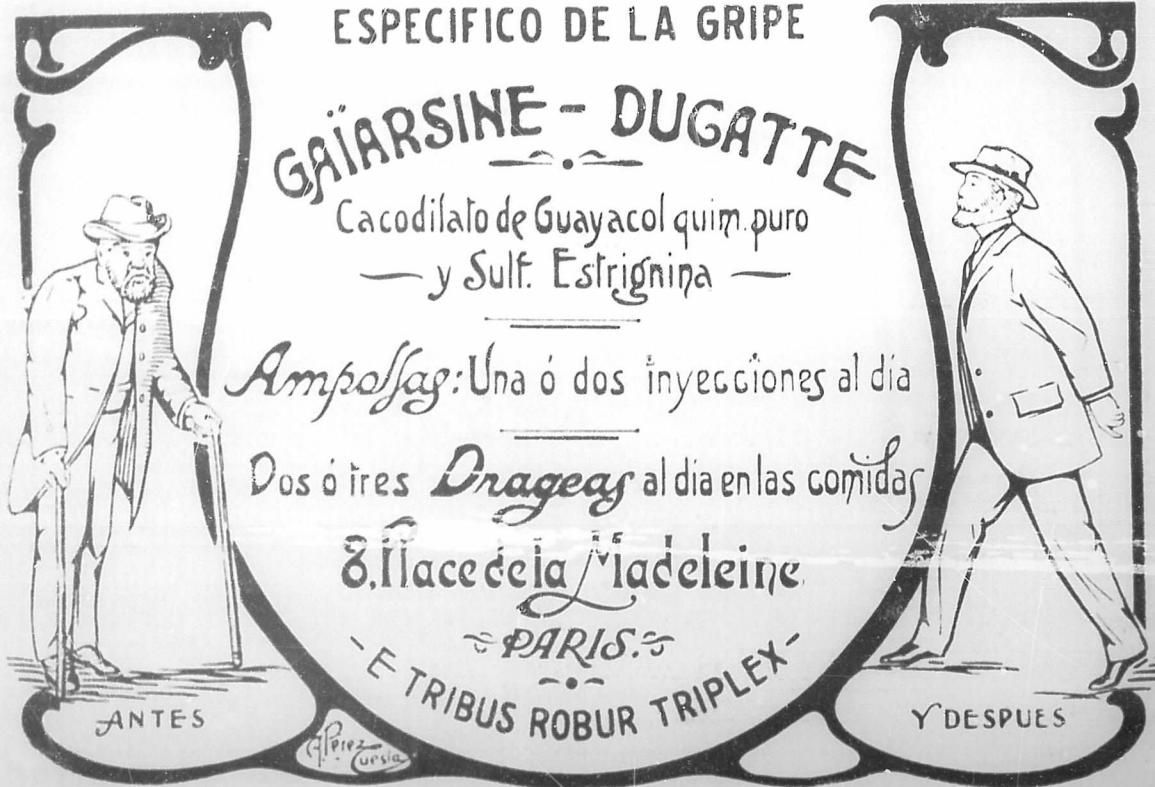 ESPECIFICO DE LA GRIPE
GAÏARSINE - DUGATTE
Cacodilato de Guayacol quim. puro
— y Sulf. Estrignina —
Ampollas: Una ó dos inyecciones al dia
Dos ó tres Drageas al dia en las comidas
8, Place de la Madeleine
PARIS.
- E TRIBUS ROBUR TRIPLEX -
ANTES
Y DESPUES
A. Pérez Cuesta